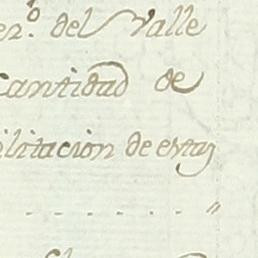 en2.º del Valle
Cantidad de
ilitacion de estas
. . . . . . "